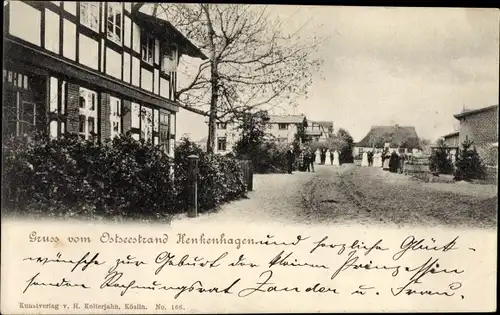 Gruss vom Ostseestrand Henkenhagen und herzliche Glück-
wünsche zur Geburt der kleinen Prinzessin
senden Rechnungsrat Zander u. Frau.
Kunstverlag v. H. Kolterjahn, Köslin. No. 166.